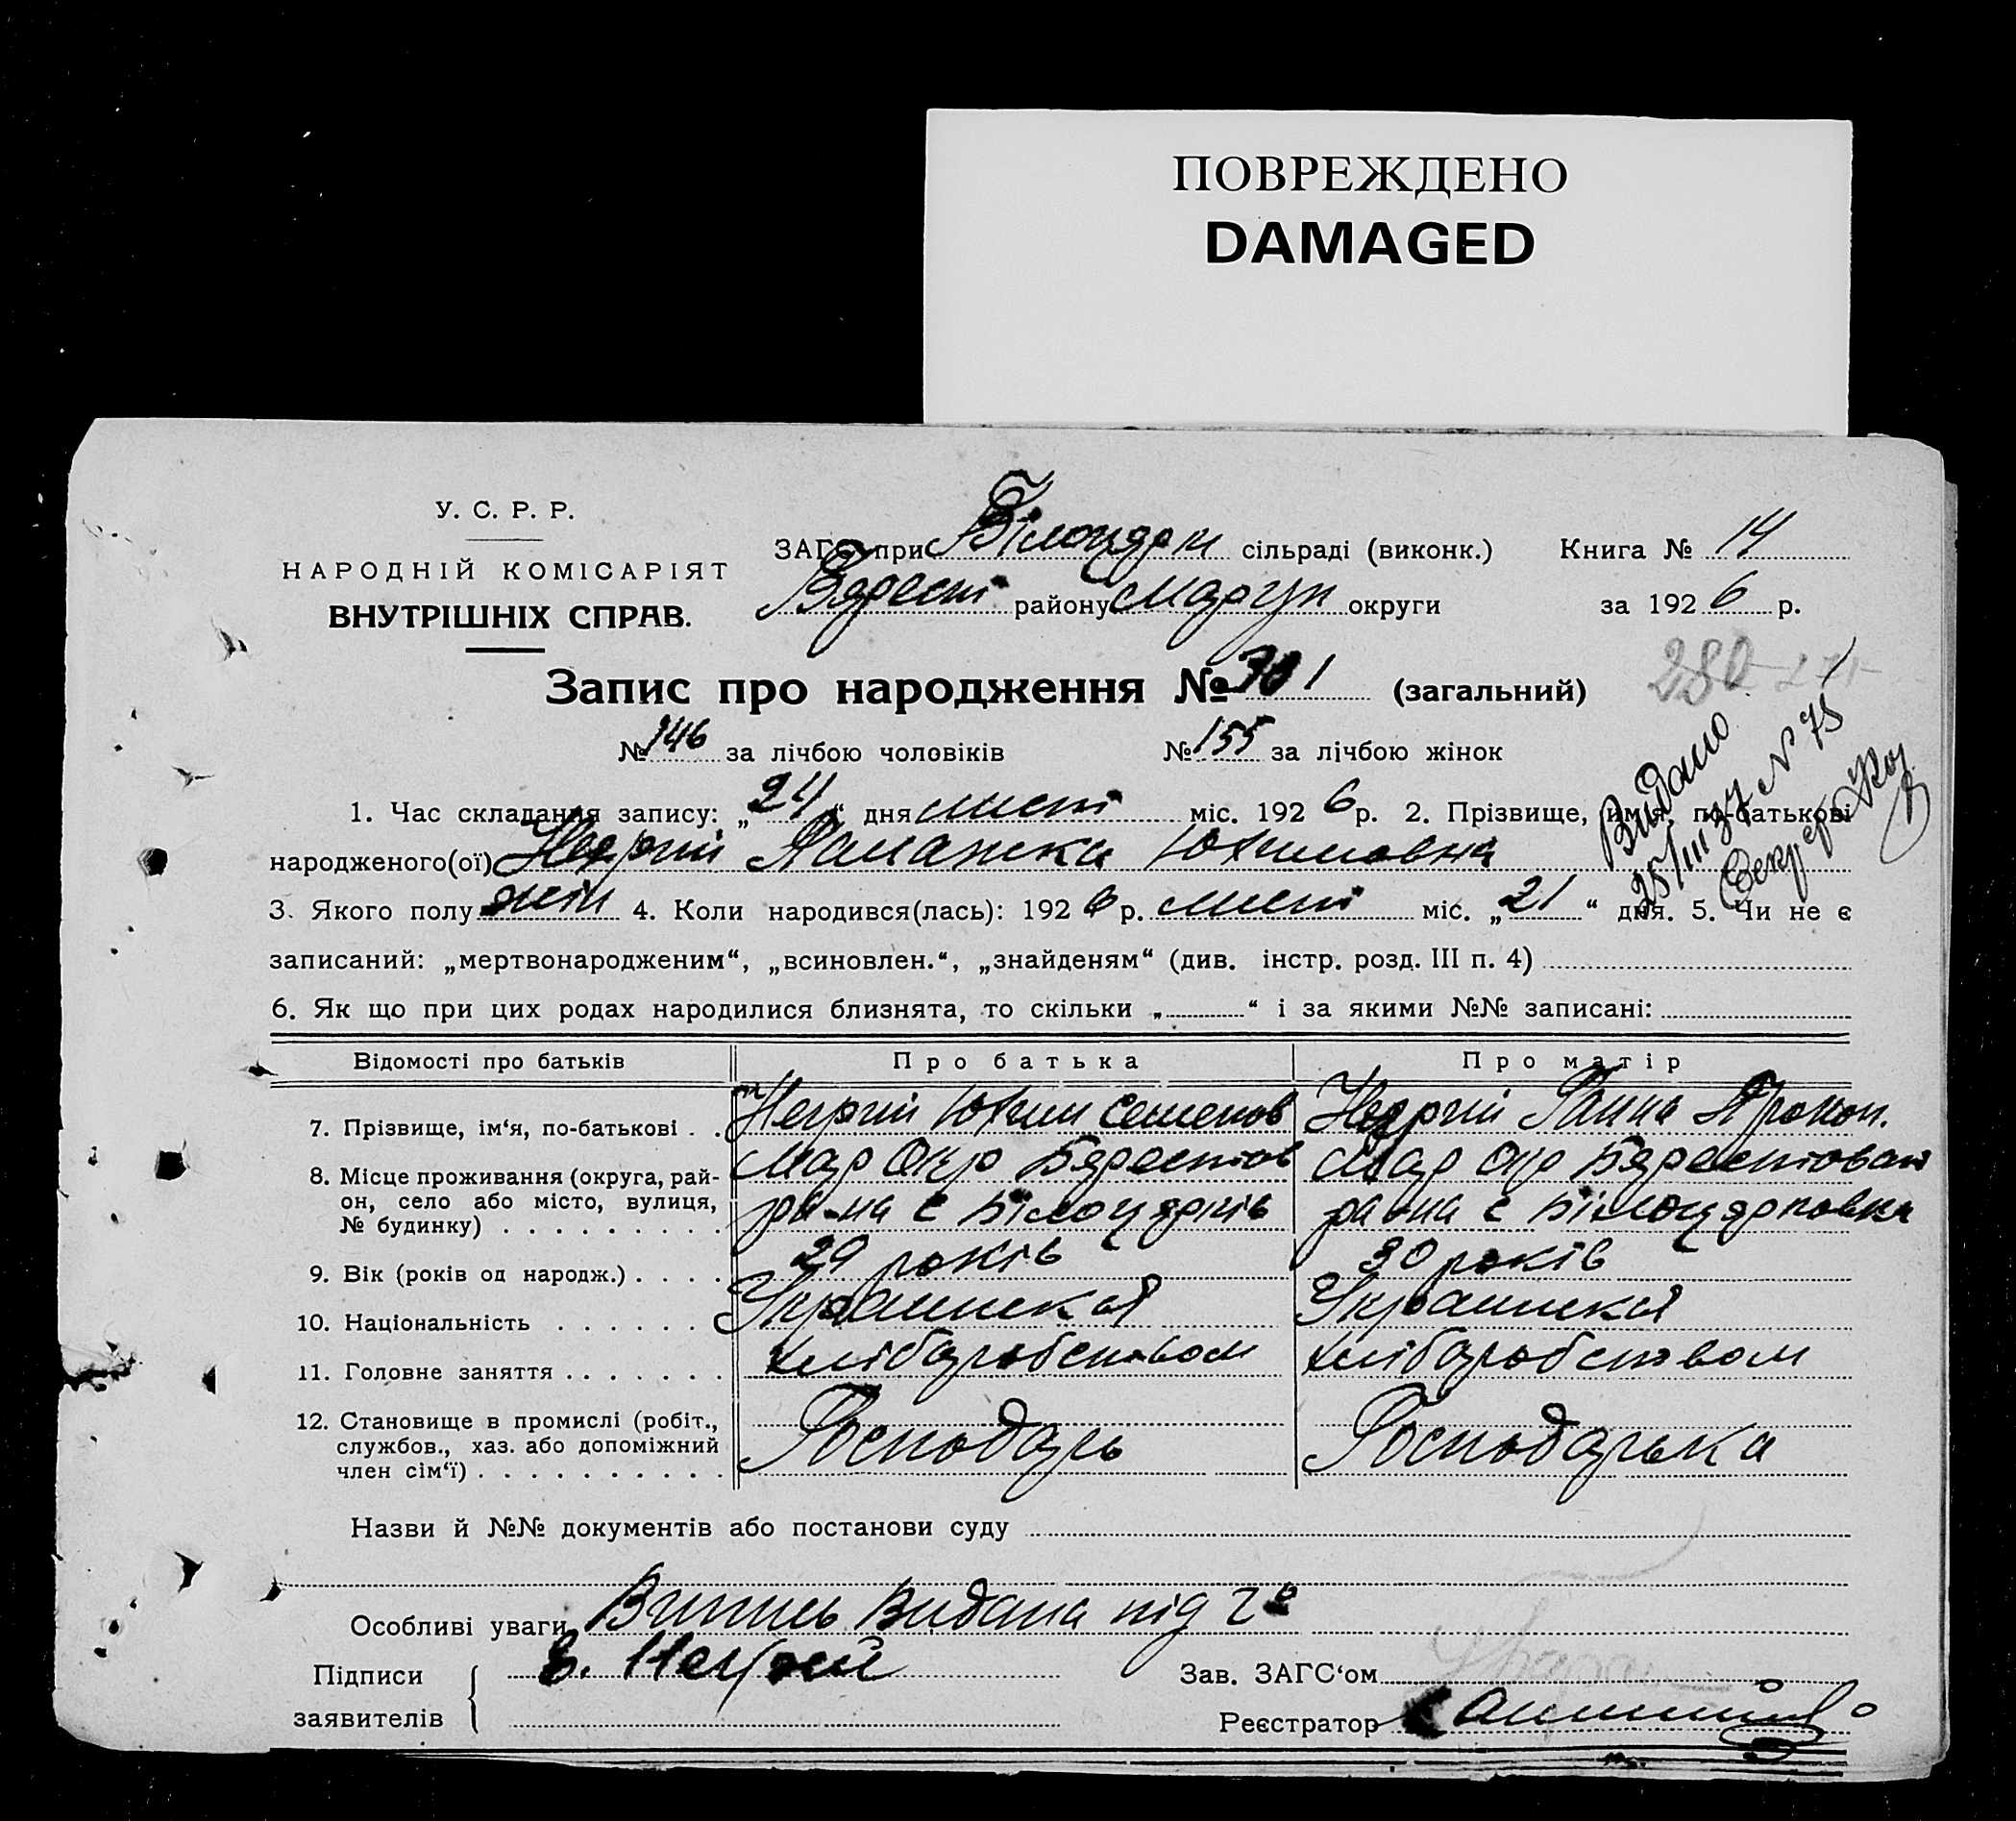 ПОВРЕЖДЕНО
DAMAGED
У. С. Р. Р.
НАРОДНІЙ КОМІСАРІЯТ
ВНУТРІШНІХ СПРАВ.
ЗАГС при Білоцерк сільраді (виконк.) Книга № 14
району округи за 1926 р.
Запис про народження № 301 (загальний)
280
№ 146 за лічбою чоловіків № 155 за лічбою жінок
Видано
25/III 37 N 75
Секр
1. Час складання запису: „24“ дня лист міс. 1926 р. 2. Прізвище, имя, по-батькові
народженого(ої) Негрий Юхимовна
3. Якого полу жін 4. Коли народився(лась): 1926 р. лист міс. „21“ дня. 5. Чи не є
записаний: „мертвонародженим“, „всиновлен.“, „знайденям“ (див. інстр. розд. III п. 4)
6. Як що при цих родах народилися близнята, то скільки „ “ і за якими №№ записані:
Відомості про батьків Про батька Про матір
7. Прізвище, ім‘я, по-батькові . . Негрий Юхим Семенов Негрий Ганна Прокоп.
8. Місце проживання (округа, рай- Мар Окр Бярестов Мар Окр Бярестоваї
он, село або місто, вулиця, ра-на с Білоцярків ра-на с Білоцярковка
№ будинку) . . . . . . . . .
9. Вік (років од народж.) . . . . 29 років 30 років
10. Національність . . . . . . Украинска Украинска
11. Головне заняття . . . . . . . хлібаробством хлібаробством
12. Становище в промислі (робіт., Господарь Господарька
службов., хаз. або допоміжний
член сім‘ї) . . . . . . . . . .
Назви й №№ документів або постанови суду
Особливі уваги Випись Видана під
Підписи Негрий Зав. ЗАГС‘ом
заявителів Реєстратор